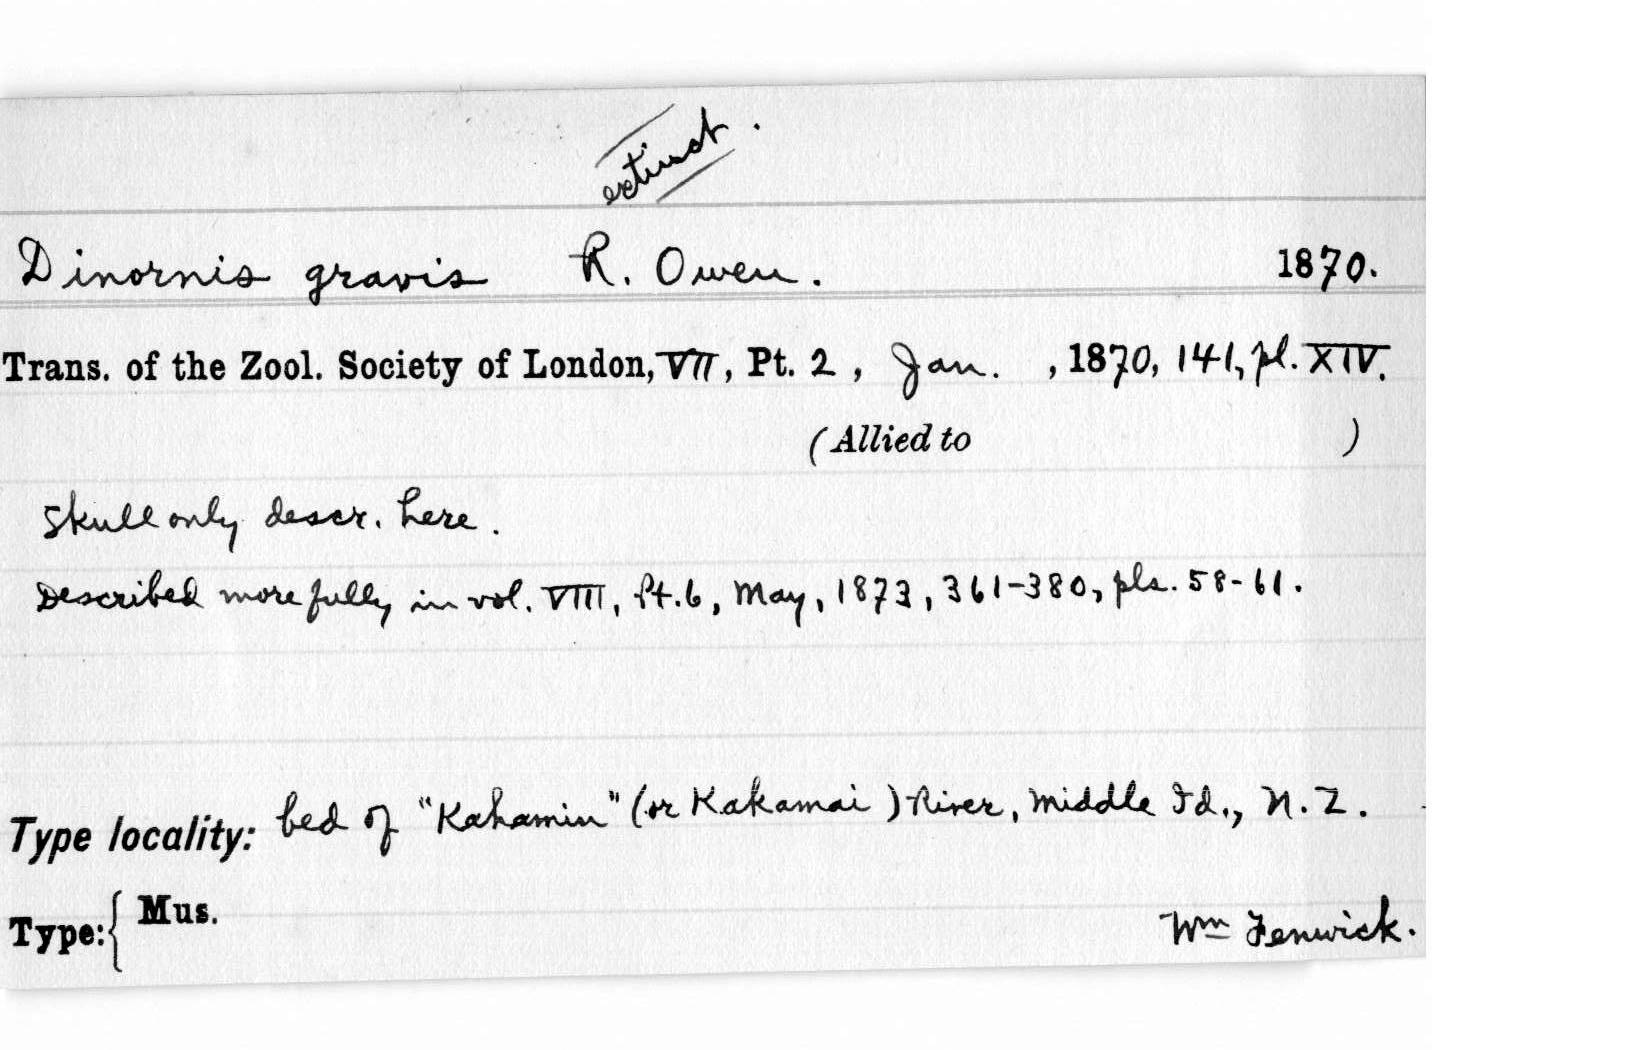 extinct.
Dinornis gravis R. Owen. 1870.
Trans. of the Zool. Society of London, VII, Pt. 2, Jan. , 1870, 141, pl. XIV.
(Allied to )
Skull only descr. here.
Described more fully in vol. VIII, Pt. 6, May, 1873, 361-380, pls. 58-61.
Type locality: bed of "Kahamin" (or Kakamai) River, Middle Id., N. Z.
Type: { Mus. Wm Fenwick.